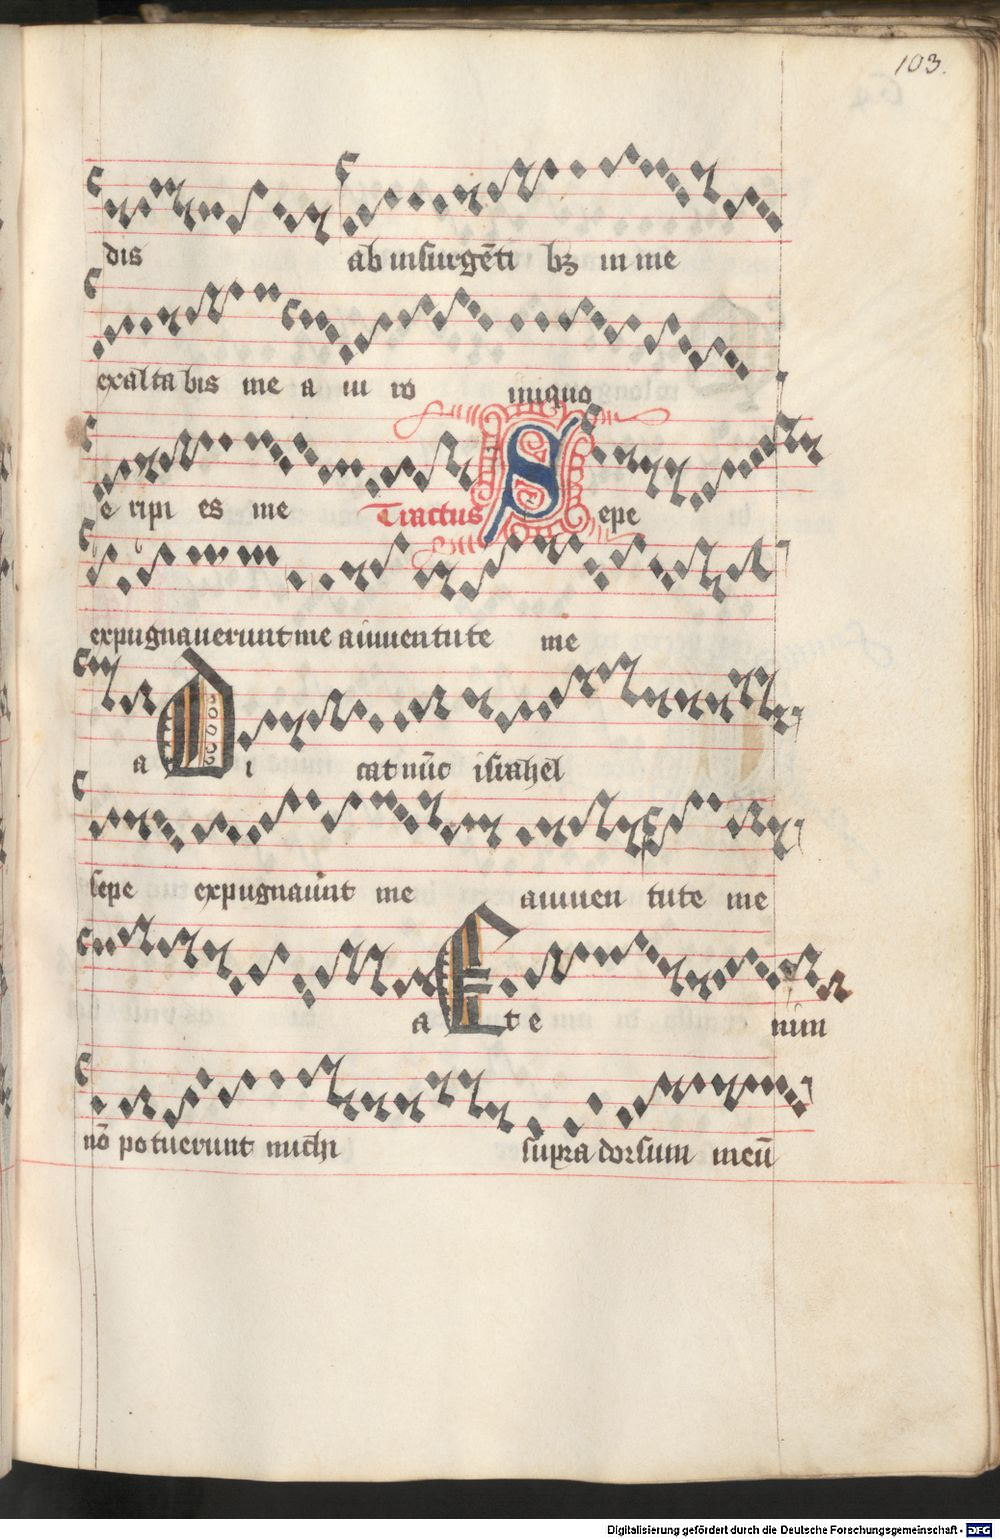 103.
dis ab insurgēti bꝫ in me
exalta bis me a ui ro iniquo
e ripi es me Tractus Sepe
expugnauerunt me a iuuentute me
a Di cat nūc israhel
sepe expugnaūnt me a iuuen tute me
a Et e nim
nō potuerunt michi supra dorsum meū
Digitalisierung gefördert durch die Deutsche Forschungsgemeinschaft - DFG